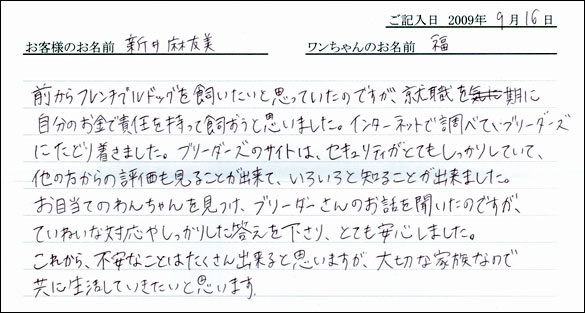 ご記入日 2009年 9月16日
お客様のお名前 新井麻友美 ワンちゃんのお名前 福
前からフレンチブルドッグを飼いたいと思っていたのですが、就職を期に
自分のお金で責任を持って飼おうと思いました。インターネットで調べていてブリーダーズ
にたどり着きました。ブリーダーズのサイトは、セキュリティがとてもしっかりしていて、
他の方からの評価も見ることが出来て、いろいろと知ることが出来ました。
お目当てのわんちゃんを見つけ、ブリーダーさんのお話を聞いたのですが、
ていねいな対応やしっかりした答えを下さり、とても安心しました。
これから、不安なことはたくさん出来ると思いますが、大切な家族なので
共に生活していきたいと思います。